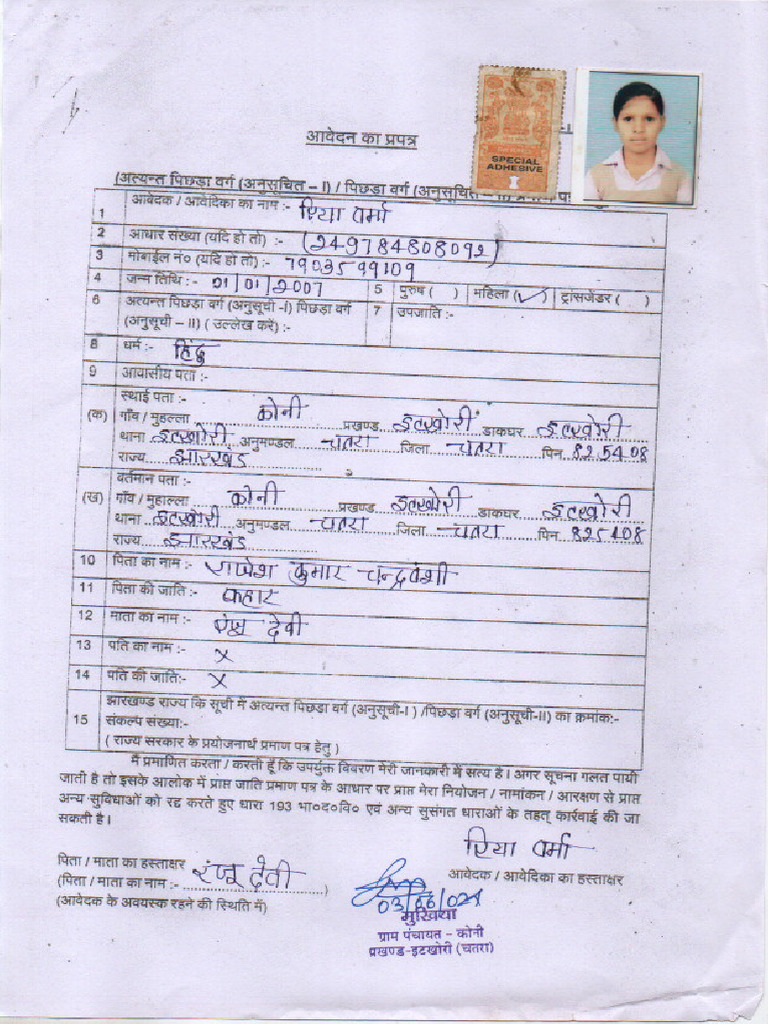 आवेदन का प्रपत्र
SPECIAL
ADHESIVE
(अत्यन्त पिछड़ा वर्ग (अनुसूचित – I) / पिछड़ा वर्ग (अनुसूचित – II)
1 आवेदक / आवेदिका का नाम :- रिया वर्मा
2 आधार संख्या (यदि हो तो) :- (249784808092)
3 मोबाईल नं० (यदि हो तो) :- 7903599109
4 जन्म तिथि :- 01/01/2007 5 पुरूष ( ) महिला (✓) ट्रांसजेंडर ( )
6 अत्यन्त पिछड़ा वर्ग (अनुसूची -I) पिछड़ा वर्ग 7 उपजाति :-
(अनुसूची – II) ( उल्लेख करें) :-
8 धर्म :- हिंदु
9 आवासीय पता :-
स्थाई पता :-
(क) गाँव / मुहल्ला कोनी प्रखण्ड इटखोरी डाकघर इटखोरी
थाना इटखोरी अनुमण्डल चतरा जिला चतरा पिन 825408
राज्य झारखंड
वर्तमान पता :-
(ख) गाँव / मुहाल्ला कोनी प्रखण्ड इटखोरी डाकघर इटखोरी
थाना इटखोरी अनुमण्डल चतरा जिला चतरा पिन 825408
राज्य झारखंड
10 पिता का नाम :- राजेश कुमार चन्द्रवंशी
11 पिता की जाति :- कहार
12 माता का नाम :- रंजू देवी
13 पति का नाम :- X
14 पति की जाति :- X
झारखण्ड राज्य कि सूची में अत्यन्त पिछड़ा वर्ग (अनुसूची-I ) /पिछड़ा वर्ग (अनुसूची-II) का क्रमांक:-
15 संकल्प संख्या:-
( राज्य सरकार के प्रयोजनार्थ प्रमाण पत्र हेतु )
मैं प्रमाणित करता / करती हूँ कि उपर्युक्त विवरण मेरी जानकारी में सत्य है। अगर सूचना गलत पायी
जाती है तो इसके आलोक में प्राप्त जाति प्रमाण पत्र के आधार पर प्राप्त मेरा नियोजन / नामांकन / आरक्षण से प्राप्त
अन्य सुविधाओं को रद्द करते हुए धारा 193 भा०द०वि० एवं अन्य सुसंगत धाराओं के तहत् कार्रवाई की जा
सकती है।
रिया वर्मा
पिता / माता का हस्ताक्षर रंजू देवी आवेदक / आवेदिका का हस्ताक्षर
(पिता / माता का नाम :- )
(आवेदक के अवयस्क रहने की स्थिति में)
03/06/024
मुखिया
ग्राम पंचायत – कोनी
प्रखण्ड-इटखोरी (चतरा)